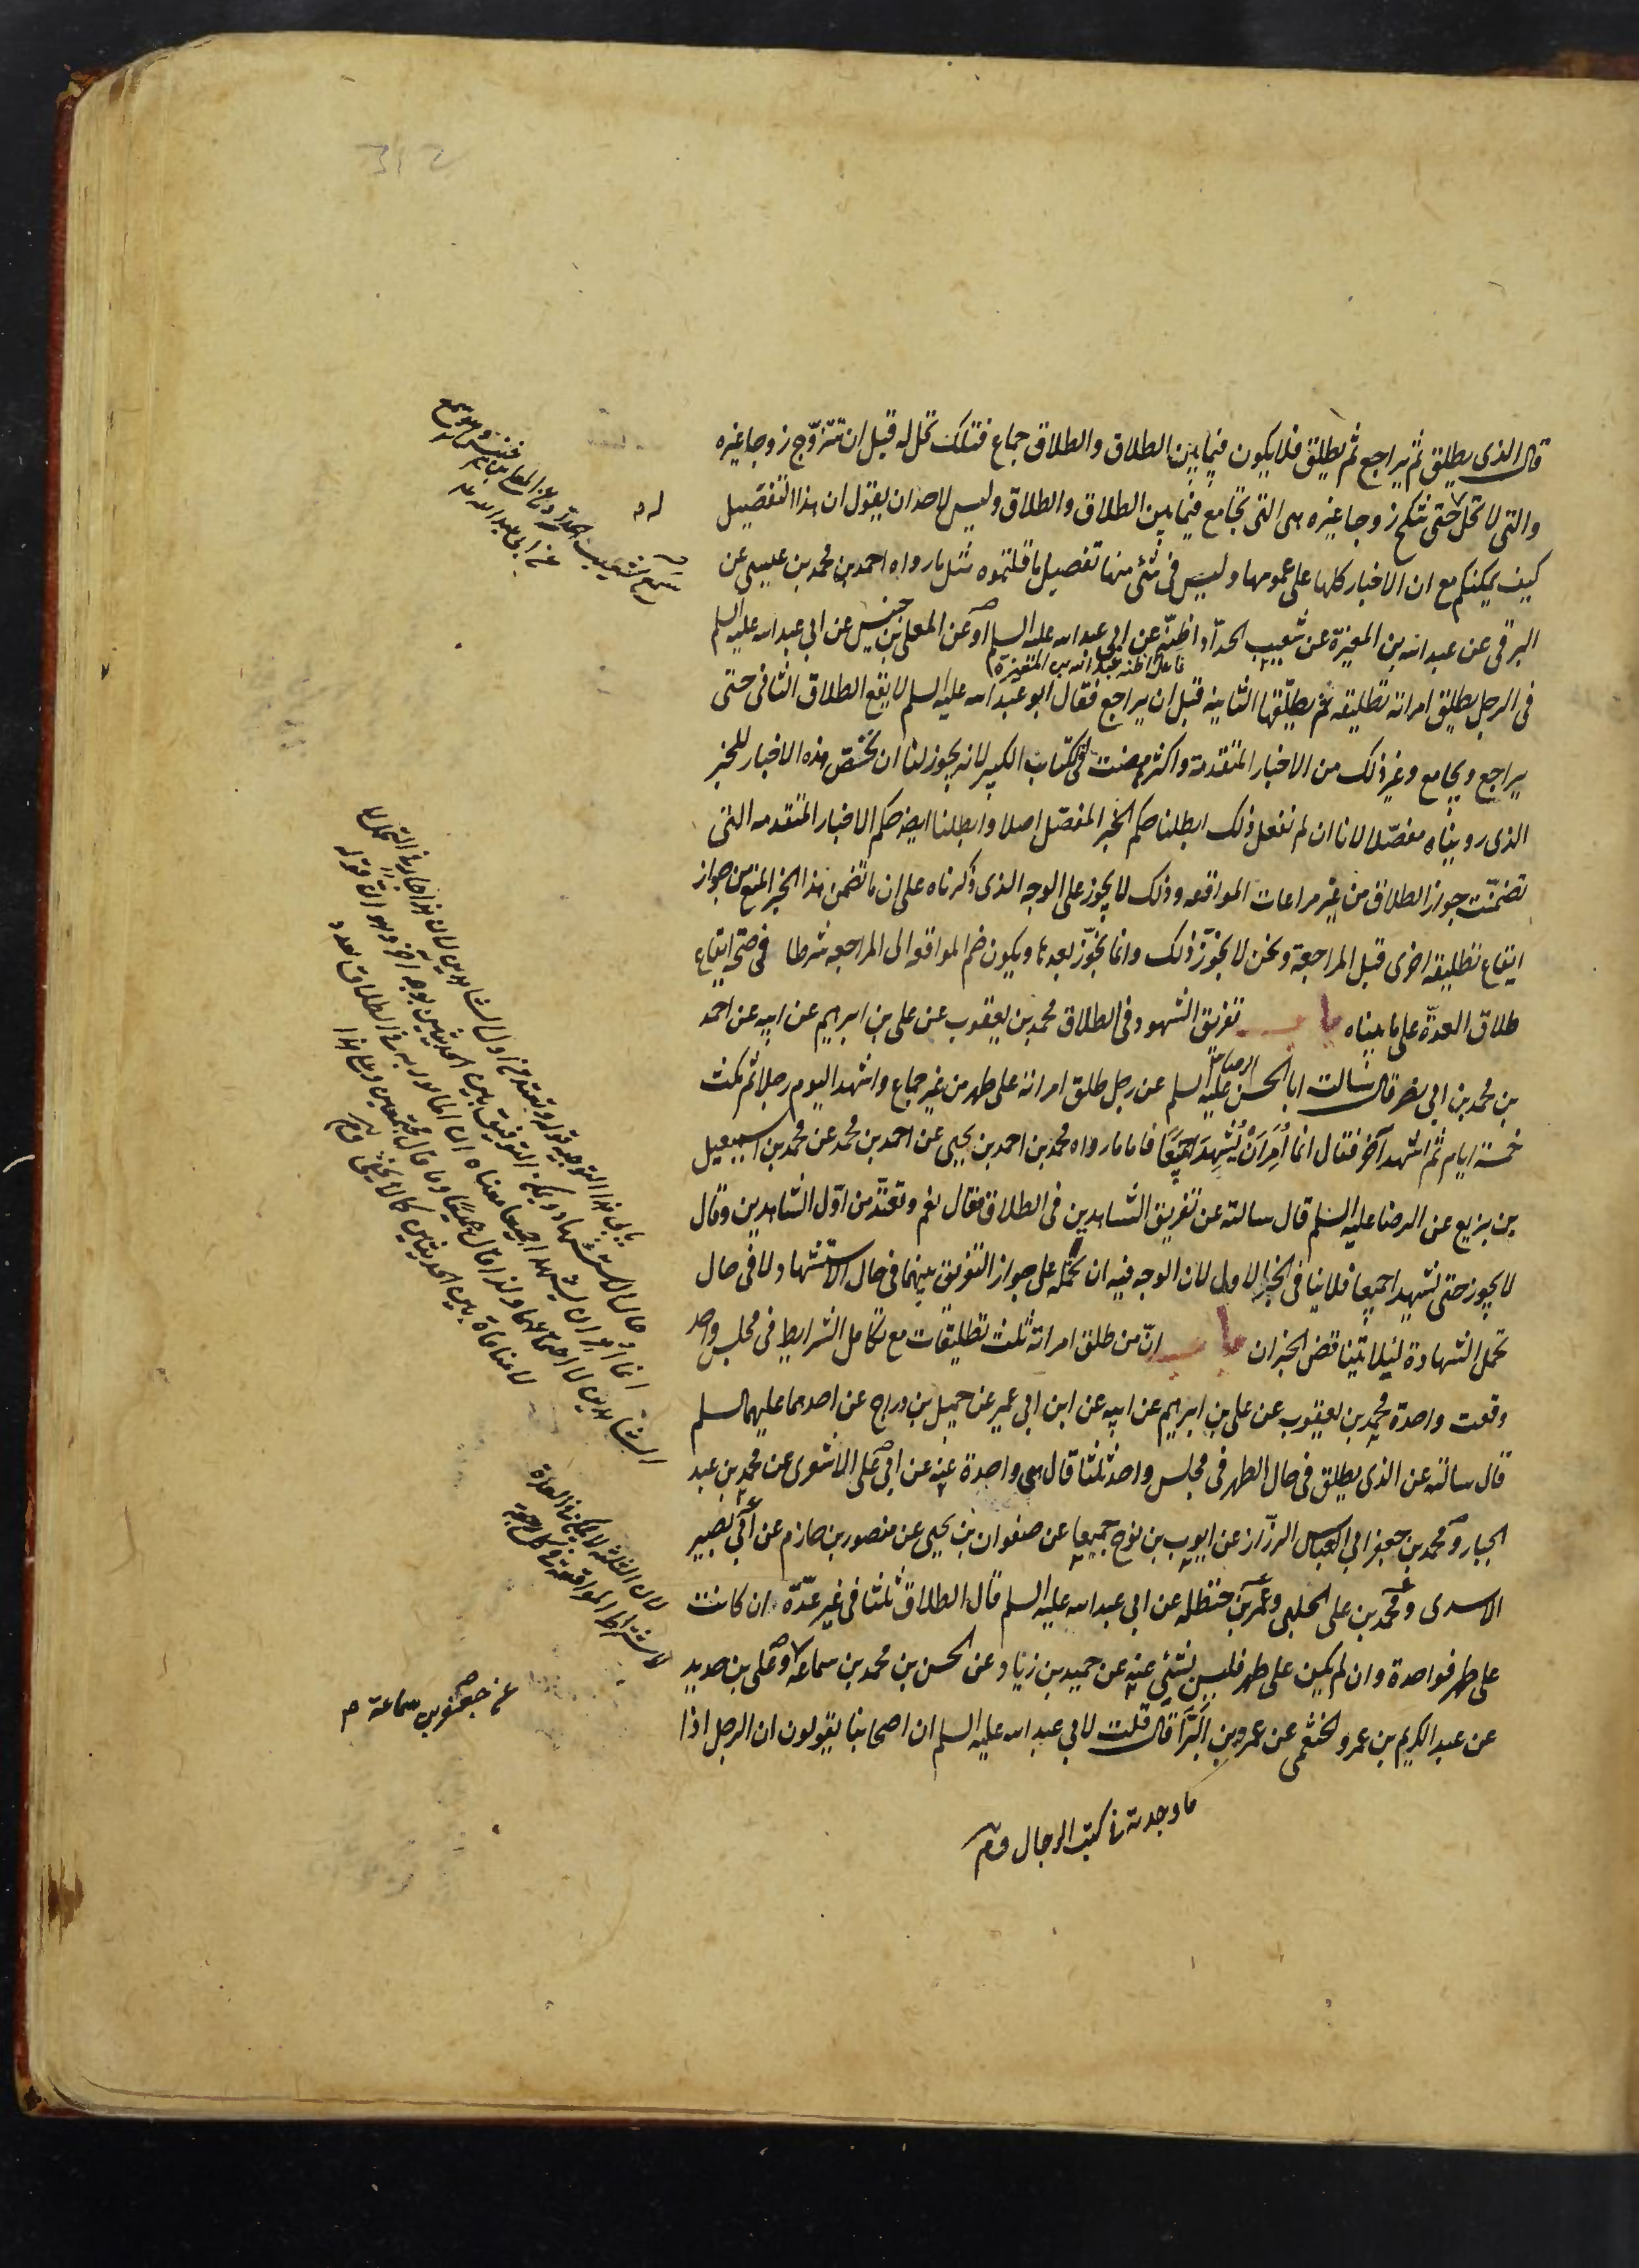 312
قال الذى يطلق ثم يراجع ثم يطلق فلا يكون فيما بين الطلاق والطلاق جماع فتلك تحل له قبل ان تتزوّج زوجا غيره
والتى لا تحل حتى تنكح زوجا غيره هى التى تجامع فيما بين الطلاق والطلاق وليس لاحد ان يقول ان هذا التفصيل
كيف يمكنكم مع ان الاخبار كلها على عمومها وليس فى شئ منها تفصيل ما قلتموه مثل ما رواه احمد بن محمد بن عيسى عن
البرقى عن عبد الله بن المغيرة عن شعيب الحدّاد اظنّه عن ابى عبد الله عليه السلم او عن المعلى بن خنيس عن ابى عبد الله عليه السلم
فاعل اظنه عبد الله بن المغيرة
فى الرجل يطلق امراته تطليقه ثم يطلّقها الثانيه قبل ان يراجع فقال ابو عبد الله عليه السلم لا يقع الطلاق الثانى حتى
يراجع ويجامع وغير ذلك من الاخبار المتقدمة واكثرهم مضت فى كتاب الكبير لانه يجوز لنا ان نخصّ هذه الاخبار للخبر
الذى رويناه مفصّلا لانا ان لم نفعل ذلك ابطلنا حكم الخبر المفصّل اصلا وابطلنا ايضا حكم الاخبار المتقدمه التى
تضمنّت جواز الطلاق من غير مراعات المواقعه وذلك لا يجوز على الوجه الذى ذكرناه على ان ما تضمن هذا الخبر المنع من جواز
ايقاع تطليقه اخرى قبل المراجعة ونحن لا نجوّز ذلك وانما نجوّز بعدها ويكون ضم المواقعه الى المراجعه شرطا فى صحة ايقاع
طلاق العدّة على ما بيناه باب تفريق الشهود فى الطلاق محمد بن يعقوب عن على بن ابرهيم عن ابيه عن احمد
بن محمد بن ابى نصر قال سالت ابا الحسن عليه السلم عن رجل طلق امراته على طهر من غير جماع واشهد اليوم رجلا ثم مكث
خمسة ايام ثم اشهد آخر فقال انما اُمر ان يُشهدا جميعًا فاما ما رواه محمد بن احمد بن يحيى عن احمد بن محمد عن محمد بن اسمعيل
بن بزيع عن الرضا عليه السلم قال سالته عن تفريق الشاهدين فى الطلاق فقال نعم وتعتدّ من اوّل الشاهدين وقال
لا يجوز حتى يشهدا جميعا فلا ينافى الخبر الاول لان الوجه فيه ان نحمله على جواز التفريق بينهما فى حال الاستشهاد لا فى حال
تحمل الشهادة لئلا يتناقض الخبران باب انّ من طلق امراته ثلث تطليقات مع تكامل الشرايط فى مجلس واحد
وقعت واحدة محمد بن يعقوب عن على بن ابرهيم عن ابيه عن ابن ابى عمير عن جميل بن دراج عن احدهما عليهما السلم
قال سالته عن الذى يطلق فى حال الطهر فى مجلس واحد ثلثا قال هى واحدة عنه عن ابى على الاشعرى عن محمد بن عبد
الجبار ومحمد بن جعفر ابى العباس الرزّاز عن ايوب بن نوح جميعا عن صفوان بن يحيى عن منصور بن حازم عن ابى بصير
الاسدى ومحمد بن على الحلبى وعمر بن حنظله عن ابى عبد الله عليه السلم قال الطلاق ثلثا فى غير عدّة ان كانت
على طهر فواحدة وان لم يكن على طهر فليس بشئ عنه عن حميد بن زياد عن الحسن بن محمد بن سماعه وعلى بن حديد
عن عبد الكريم بن عمرو الخثعمى عن عمرو بن البرّا قال قلت لابى عبد الله عليه السلم ان اصحابنا يقولون ان الرجل اذا
ما وجدته فى كتب الرجال
عن جعفر بن سماعة